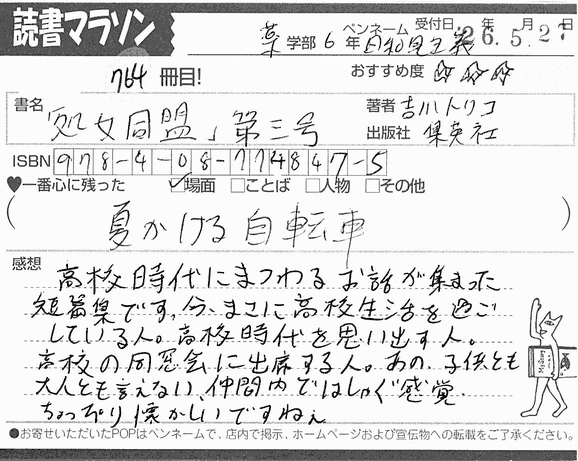 読書マラソン
薬学部 6年 ペンネーム 日和見主義 受付日 26年5月27日
764冊目!
おすすめ度 ☆☆☆
書名 「処女同盟」第三号
著者 吉川トリコ
出版社 集英社
ISBN 978-4-08-774847-5
♥一番心に残った ☑場面 □ことば □人物 □その他
(夏かける自転車)
感想
高校時代にまつわるお話が集まった
短篇集です。今、まさに高校生活を過ご
している人。高校時代を思い出す人。
高校の同窓会に出席する人。あの、子供とも
大人とも言えない、仲間内ではしゃぐ感覚。
ちょっぴり懐かしいですねぇ
●お寄せいただいたPOPはペンネームで、店内で掲示、ホームページおよび宣伝物への転載をご了承ください。